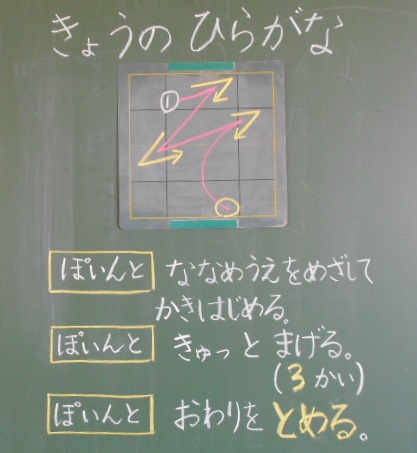 きょうの ひらがな
①
ぽいんと ななめうえをめざして
かきはじめる。
ぽいんと きゅっと まげる。
(3かい)
ぽいんと おわりを とめる。